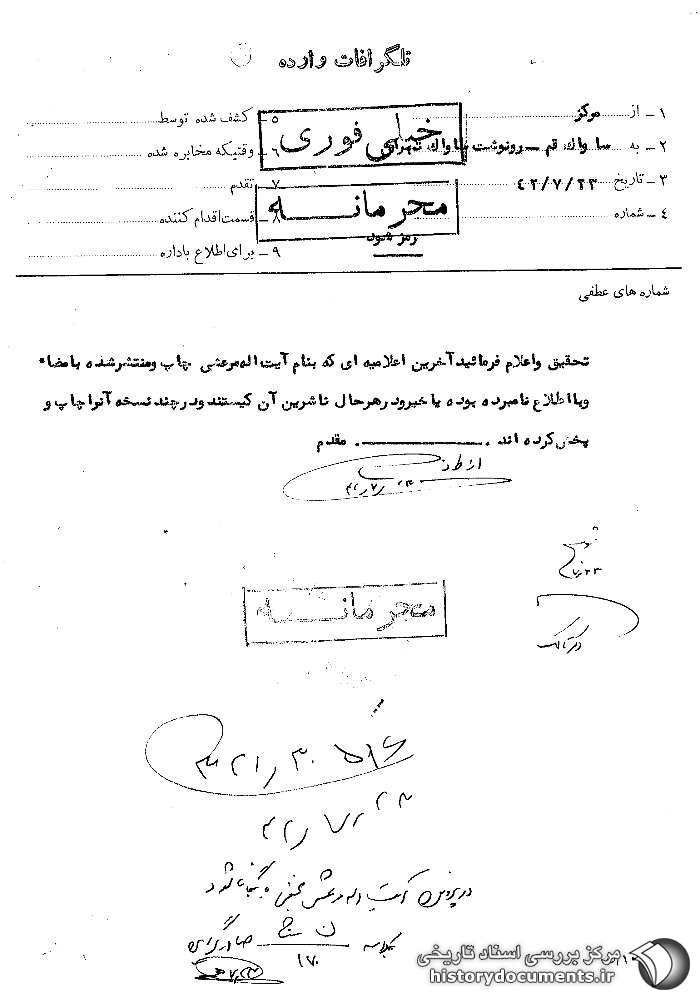 تلگرافات وارده
۱ ـ از مرکز
۲ ـ به ساواک قم ــ رونوشت ساواک تهران
۳ ـ تاریخ ۴۲/۷/۲۳
۴ ـ شماره
۵ ـ کشف شده توسط
۶ ـ وقتیکه مخابره شده
۷ ـ تقدم
۸ ـ قسمت اقدام کننده
۹ ـ برای اطلاع باداره
خیلی فوری
محرمانـــه
رمز شود
شماره های عطفی
تحقیق واعلام فرمائید آخرین اعلامیه ای که بنام آیت اله مرعشی چاپ ومنتشرشده بامضاء
ویا اطلاع نامبرده بوده یا خیرودرهرحال ناشرین آن کیستند ودرچند نسخه آنرا چاپ و
پخش کرده اند . ــــــــــــ . مقدم
از طرف
محرمانـــه
در پرونده آیت اله مرعشی نجفی بایگانی شود
۱۷۰
مرکز بررسی اسناد تاریخی
historydocuments.ir